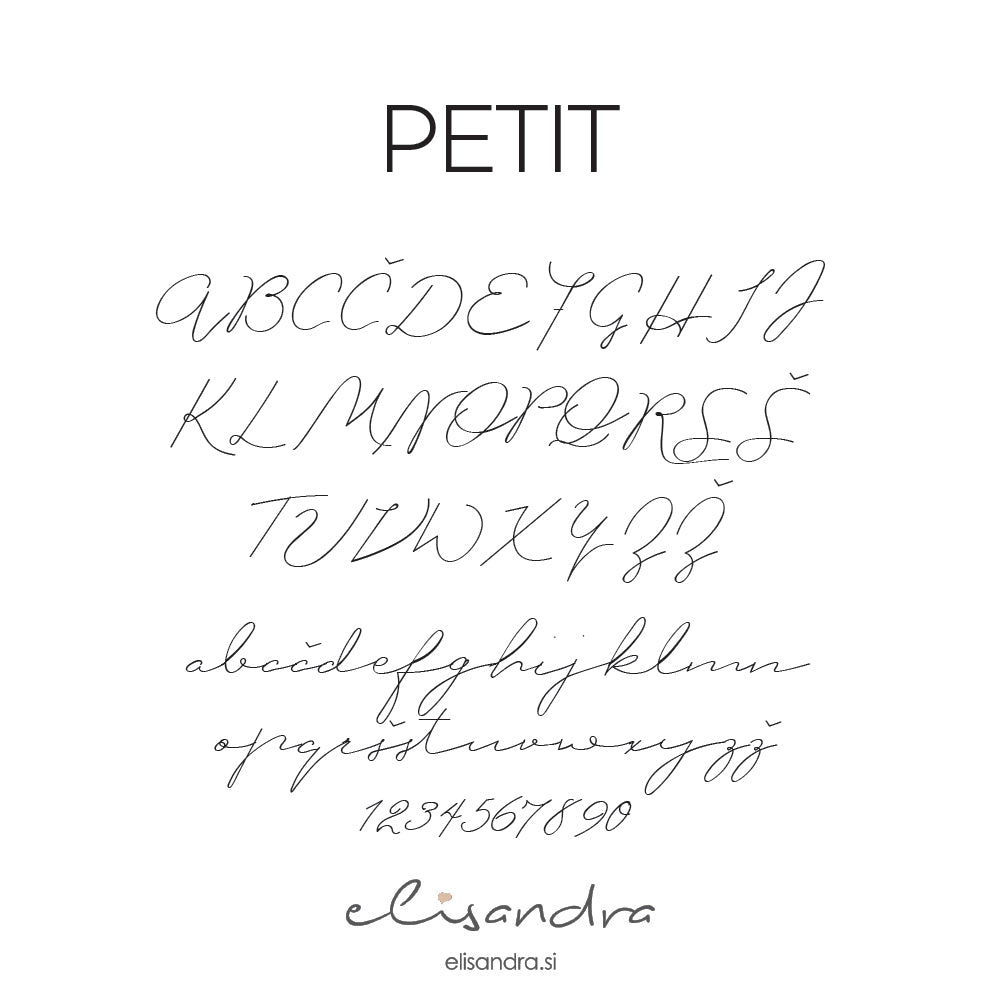 PETIT
ABCČDEFGHIJ
KLMNOPQRSŠ
TUVWXYZŽ
abcčdefghijklmn
opqrsštuvwxyzž
1234567890
elisandra
elisandra.si